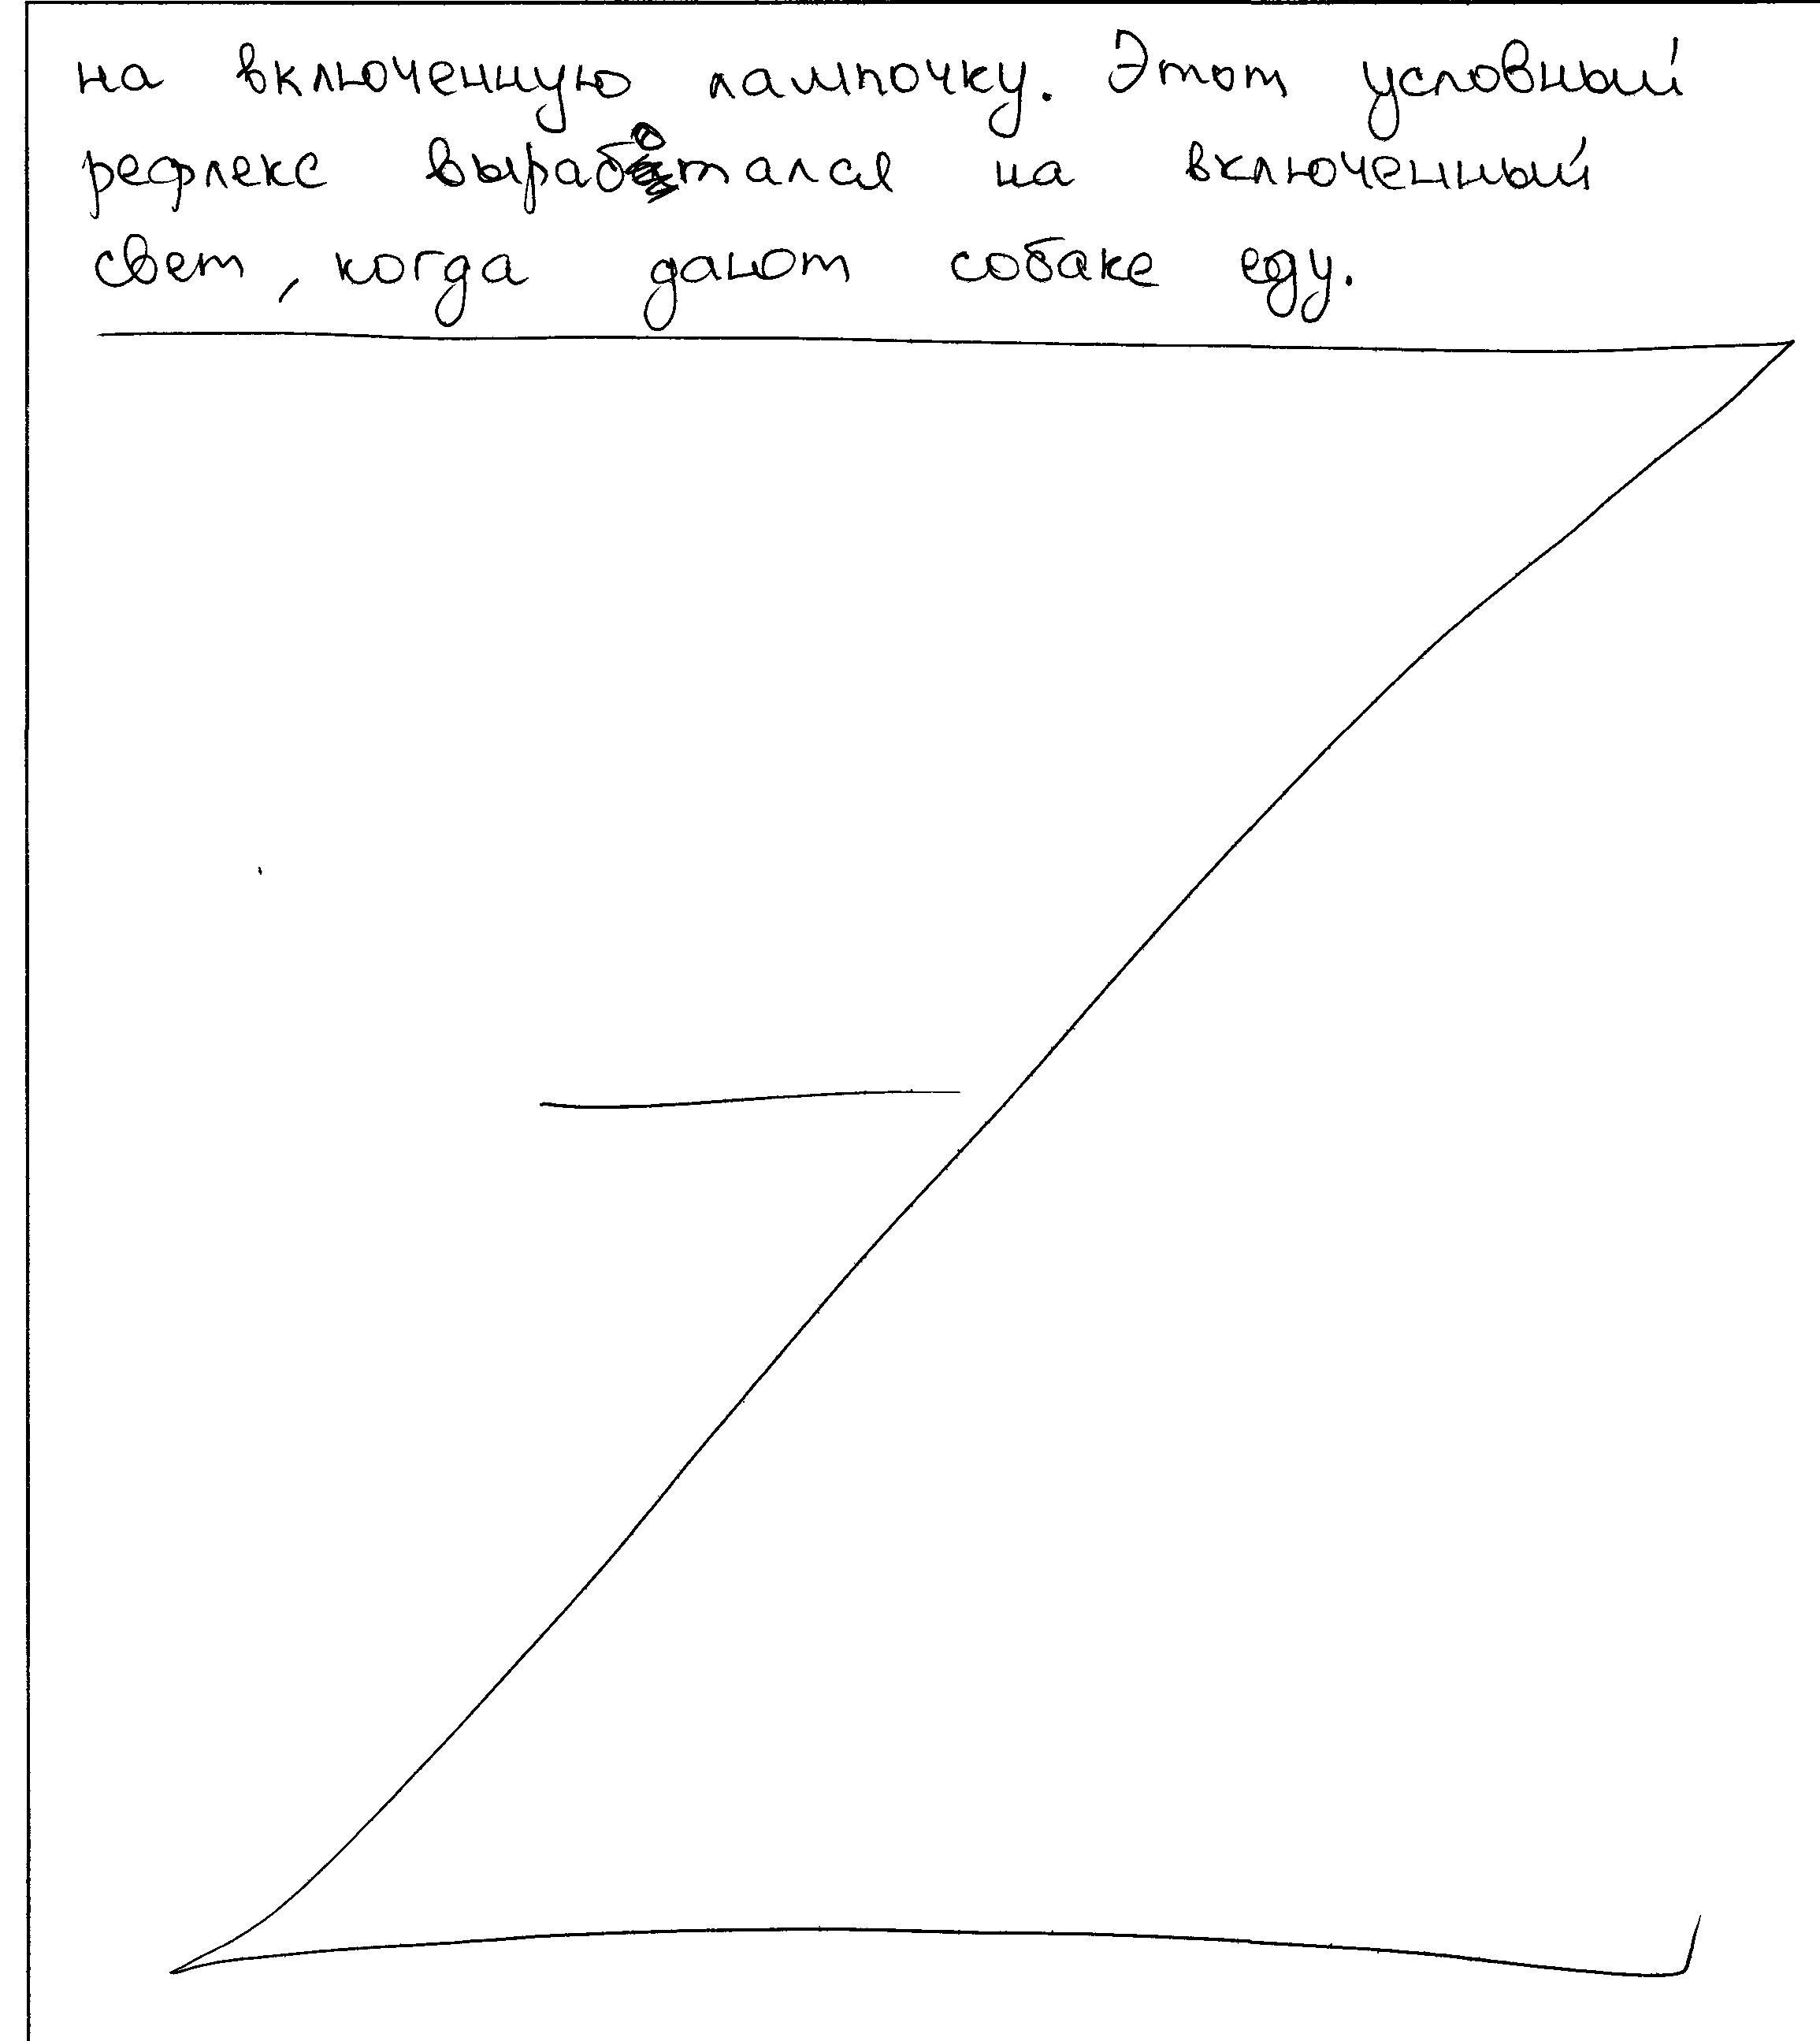 на включенную лампочку. Этот условный
рефлекс выработался на включенный
свет, когда дают собаке еду.